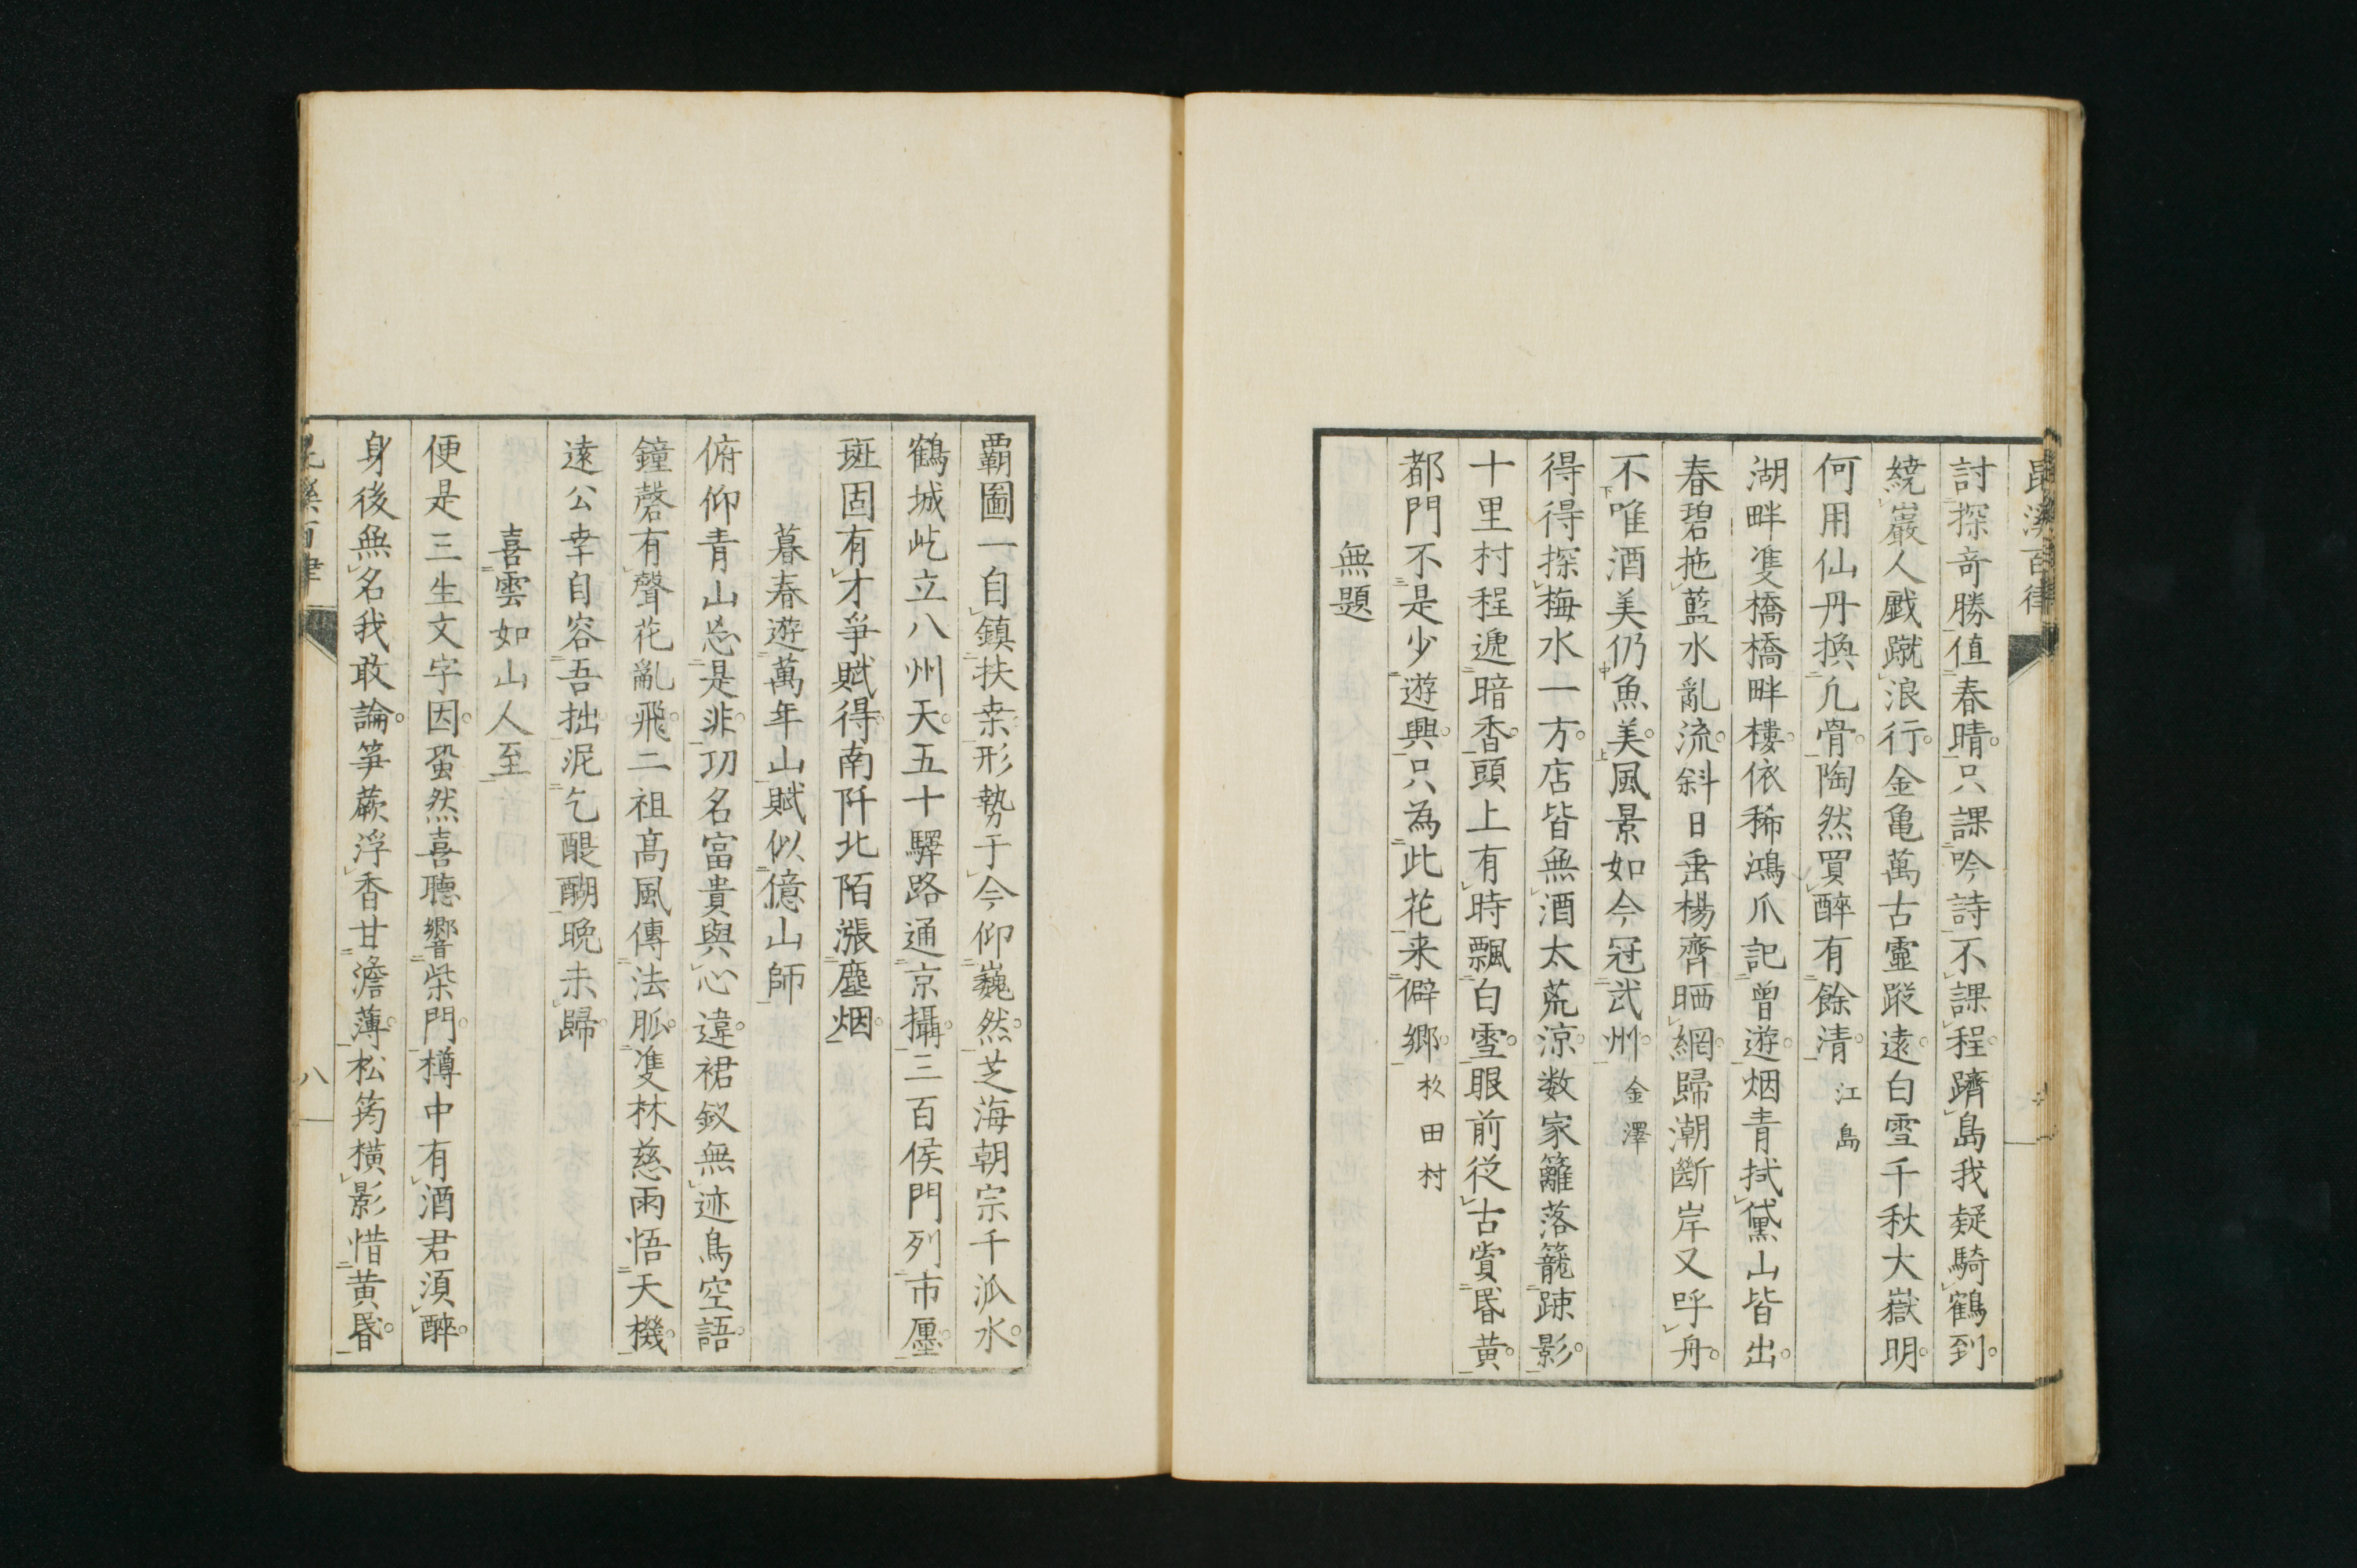 昆溪百律
討探奇勝值春晴只課吟詩不課程躋島我疑騎鶴到
繞巖人戲蹴浪行金亀萬古靈蹤遠白雪千秋大嶽明
何用仙丹換凢骨陶然買醉有餘清 江島
湖畔隻橋橋畔樓依稀鴻爪記曽遊烟青拭黛山皆出
春碧拖藍水亂流斜日垂楊齊晒網歸潮斷岸又呼舟
不唯酒美仍魚美風景如今冠武州 金澤
得得探梅水一方店皆無酒太荒涼数家籬落籠疎影
十里村程遞暗香頭上有時飄白雪眼前従古賞昏黃
都門不是少遊興只為此花来僻鄉 杉田村
無題
覇圖一自鎮扶桒形勢于今仰巍然芝海朝宗千派水
鶴城屹立八州天五十驛路通京攝三百侯門列市廛
斑固有才爭賦得南阡北陌漲塵烟
暮春遊萬年山賦似億山師
俯仰青山忘是非功名富貴與心違裙釵無迹鳥空語
鐘磬有聲花亂飛二祖髙風傳法脈隻林慈雨悟天機
遠公幸自容吾拙泥乞醍醐晩未歸
喜雲如山人至
便是三生文字因蛩然喜聽響柴門樽中有酒君須醉
身後無名我敢論筍蕨浮香甘澹薄松筠橫影惜黃昏
昆溪百律
八